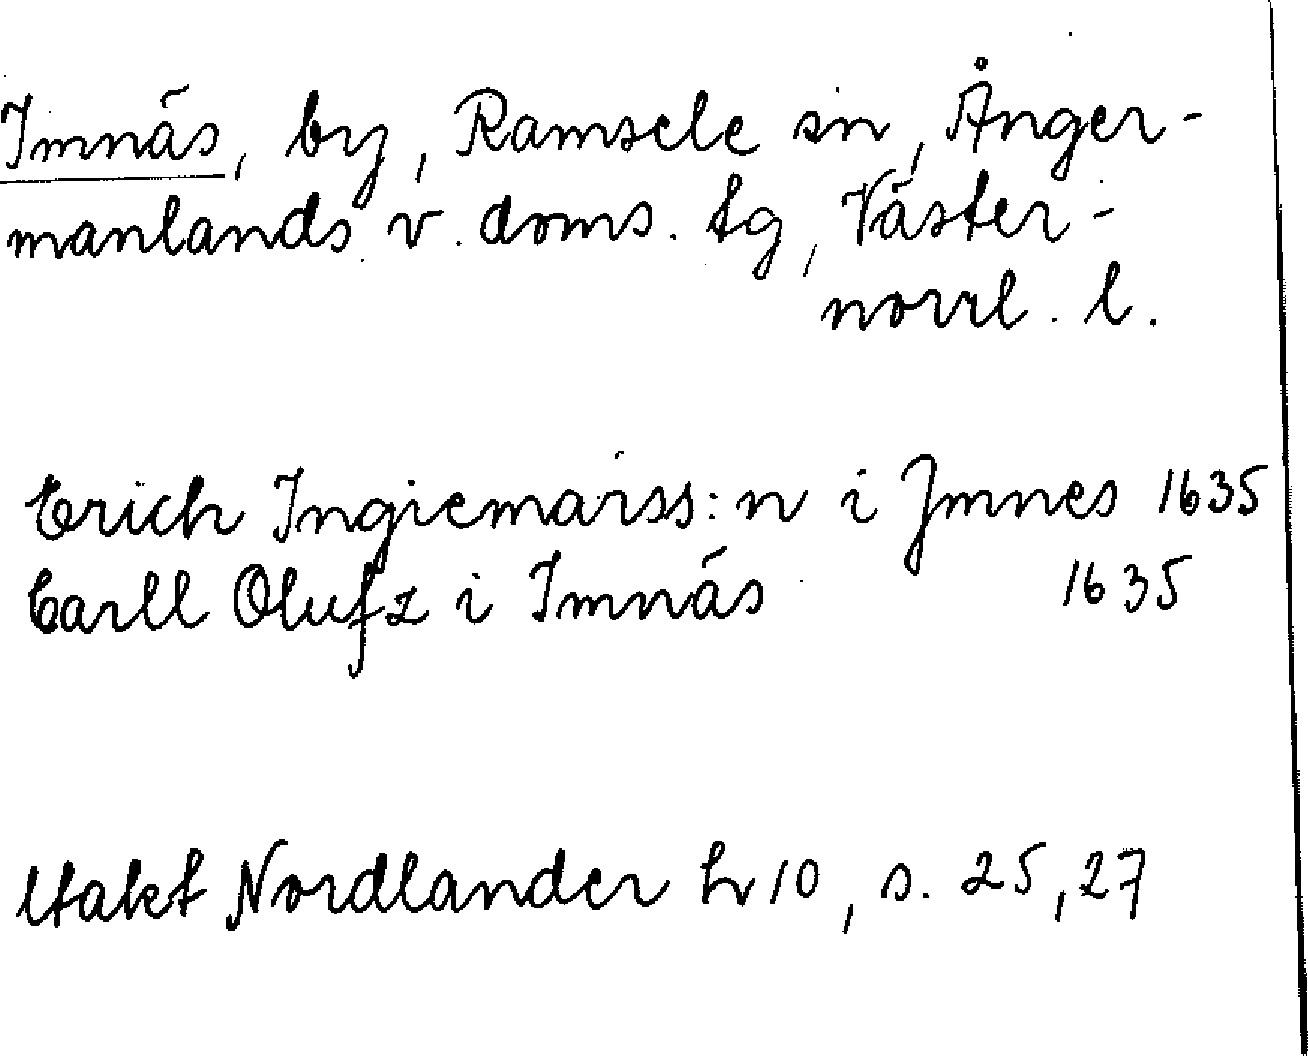 Imnäs, by, Ramsele sn, Ånger-
manlands v. doms. tg, Väster-
norrl. l.
Erich Ingiemarss:n i Jmnes 1635
Carll Olufz i Imnäs 1635
Utakt Nordlander h 10, s. 25, 27